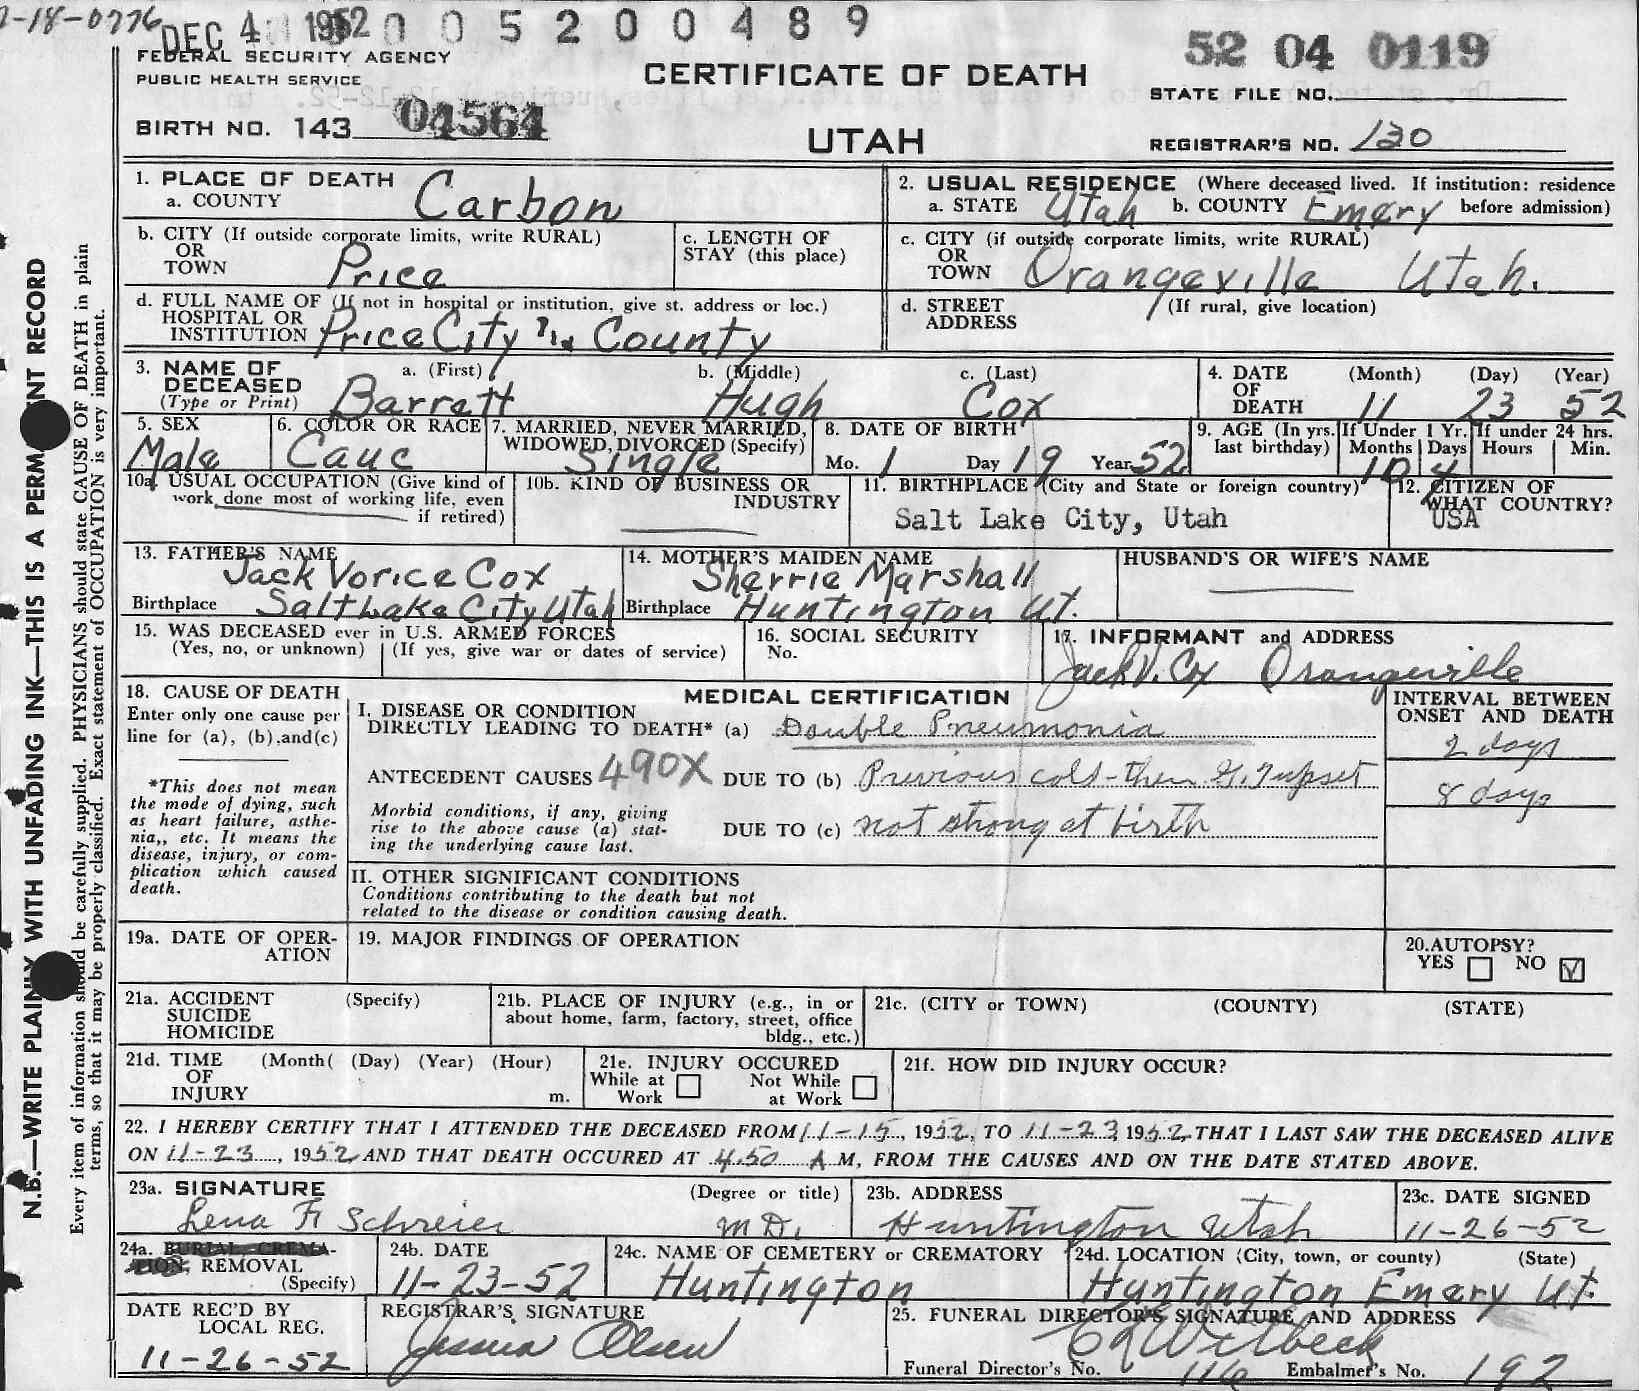 DEC 4 1952 0 0 5 2 0 0 4 8 9
FEDERAL SECURITY AGENCY
PUBLIC HEALTH SERVICE
CERTIFICATE OF DEATH
UTAH
52 04 0119
STATE FILE NO.
BIRTH NO. 143 04564
REGISTRAR'S NO. 130
1. PLACE OF DEATH
a. COUNTY Carbon
2. USUAL RESIDENCE (Where deceased lived. If institution: residence
a. STATE Utah b. COUNTY Emery before admission)
b. CITY (If outside corporate limits, write RURAL)
OR
TOWN Price
c. LENGTH OF
STAY (this place)
c. CITY (if outside corporate limits, write RURAL)
OR
TOWN Orangeville Utah.
d. FULL NAME OF (If not in hospital or institution, give st. address or loc.)
HOSPITAL OR
INSTITUTION Price City County
d. STREET (If rural, give location)
ADDRESS
3. NAME OF a. (First) b. (Middle) c. (Last)
DECEASED
(Type or Print) Barrett Hugh Cox
4. DATE (Month) (Day) (Year)
OF
DEATH 11 23 52
5. SEX
Male
6. COLOR OR RACE
Cauc
7. MARRIED, NEVER MARRIED,
WIDOWED, DIVORCED (Specify)
Single
8. DATE OF BIRTH
Mo. 1 Day 19 Year 52
9. AGE (In yrs. last birthday)
If Under 1 Yr. If under 24 hrs.
Months Days Hours Min.
10 4
10a. USUAL OCCUPATION (Give kind of
work done most of working life, even
if retired)
10b. KIND OF BUSINESS OR
INDUSTRY
11. BIRTHPLACE (City and State or foreign country)
Salt Lake City, Utah
12. CITIZEN OF
WHAT COUNTRY?
USA
13. FATHER'S NAME
Jack Vorice Cox
Birthplace Salt Lake City Utah
14. MOTHER'S MAIDEN NAME
Sherrie Marshall
Birthplace Huntington Ut.
HUSBAND'S OR WIFE'S NAME
15. WAS DECEASED ever in U.S. ARMED FORCES
(Yes, no, or unknown) (If yes, give war or dates of service)
16. SOCIAL SECURITY
No.
17. INFORMANT and ADDRESS
Jack V. Cox Orangeville
18. CAUSE OF DEATH
Enter only one cause per
line for (a), (b), and (c)
*This does not mean
the mode of dying, such
as heart failure, asthe-
nia,, etc. It means the
disease, injury, or com-
plication which caused
death.
MEDICAL CERTIFICATION
INTERVAL BETWEEN
ONSET AND DEATH
I. DISEASE OR CONDITION
DIRECTLY LEADING TO DEATH* (a) Double Pneumonia
2 days
ANTECEDENT CAUSES 490X DUE TO (b) Previous cold - then G.I. upset
8 days
Morbid conditions, if any, giving
rise to the above cause (a) stat-
ing the underlying cause last.
DUE TO (c) not strong at birth
II. OTHER SIGNIFICANT CONDITIONS
Conditions contributing to the death but not
related to the disease or condition causing death.
19a. DATE OF OPER-
ATION
19. MAJOR FINDINGS OF OPERATION
20. AUTOPSY?
YES NO
21a. ACCIDENT (Specify)
SUICIDE
HOMICIDE
21b. PLACE OF INJURY (e.g., in or
about home, farm, factory, street, office
bldg., etc.)
21c. (CITY or TOWN) (COUNTY) (STATE)
21d. TIME (Month( (Day) (Year) (Hour)
OF
INJURY m.
21e. INJURY OCCURED
While at Work Not While at Work
21f. HOW DID INJURY OCCUR?
22. I HEREBY CERTIFY THAT I ATTENDED THE DECEASED FROM 11-15, 1952, TO 11-23, 1952, THAT I LAST SAW THE DECEASED ALIVE
ON 11-23, 1952 AND THAT DEATH OCCURED AT 4:50 A M, FROM THE CAUSES AND ON THE DATE STATED ABOVE.
23a. SIGNATURE (Degree or title)
Lena F. Schreier M.D.
23b. ADDRESS
Huntington Utah
23c. DATE SIGNED
11-26-52
24a. BURIAL, CREMA-
TION, REMOVAL
(Specify)
24b. DATE
11-23-52
24c. NAME OF CEMETERY or CREMATORY
Huntington
24d. LOCATION (City, town, or county) (State)
Huntington Emery Ut.
DATE REC'D BY
LOCAL REG.
11-26-52
REGISTRAR'S SIGNATURE
Olsen
25. FUNERAL DIRECTOR'S SIGNATURE AND ADDRESS
Funeral Director's No. 116 Embalmer's No. 192
N.B.—WRITE PLAINLY WITH UNFADING INK—THIS IS A PERMANENT RECORD
Every item of information should be carefully supplied. PHYSICIANS should state CAUSE OF DEATH in plain
terms, so that it may be properly classified. Exact statement of OCCUPATION is very important.